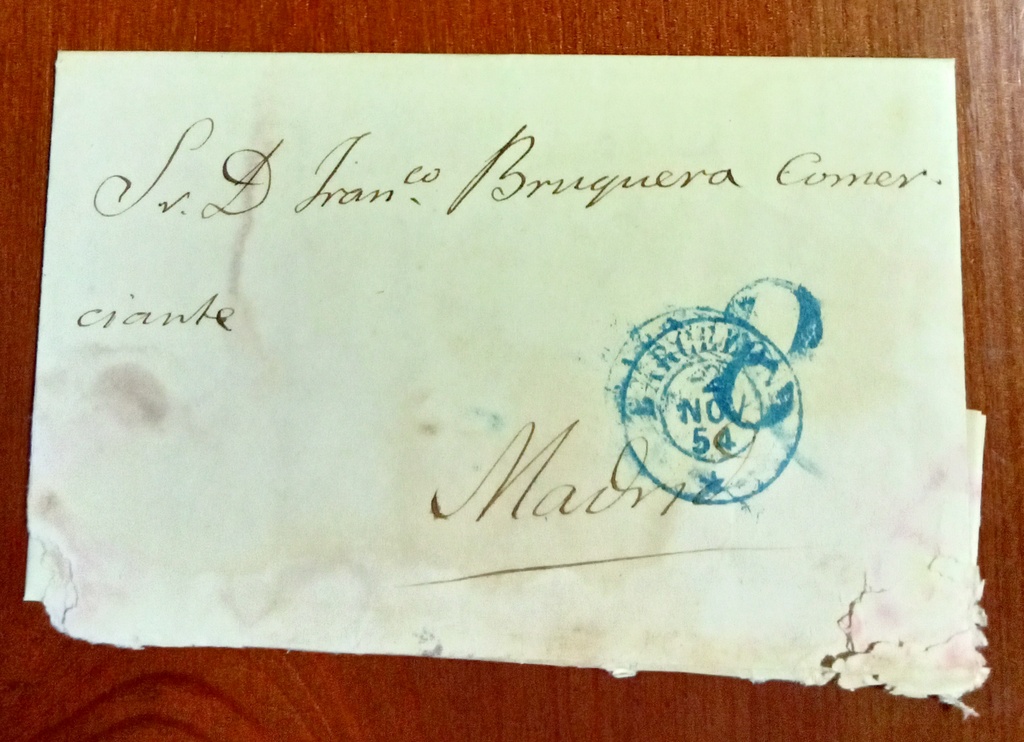 Sr. D Fran.co Bruguera Comer-
ciante
BARCELONA
NOV
54
Madrid